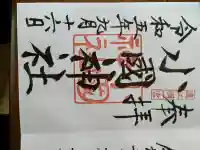 奉拝
小國神社
令和五年九月十六日